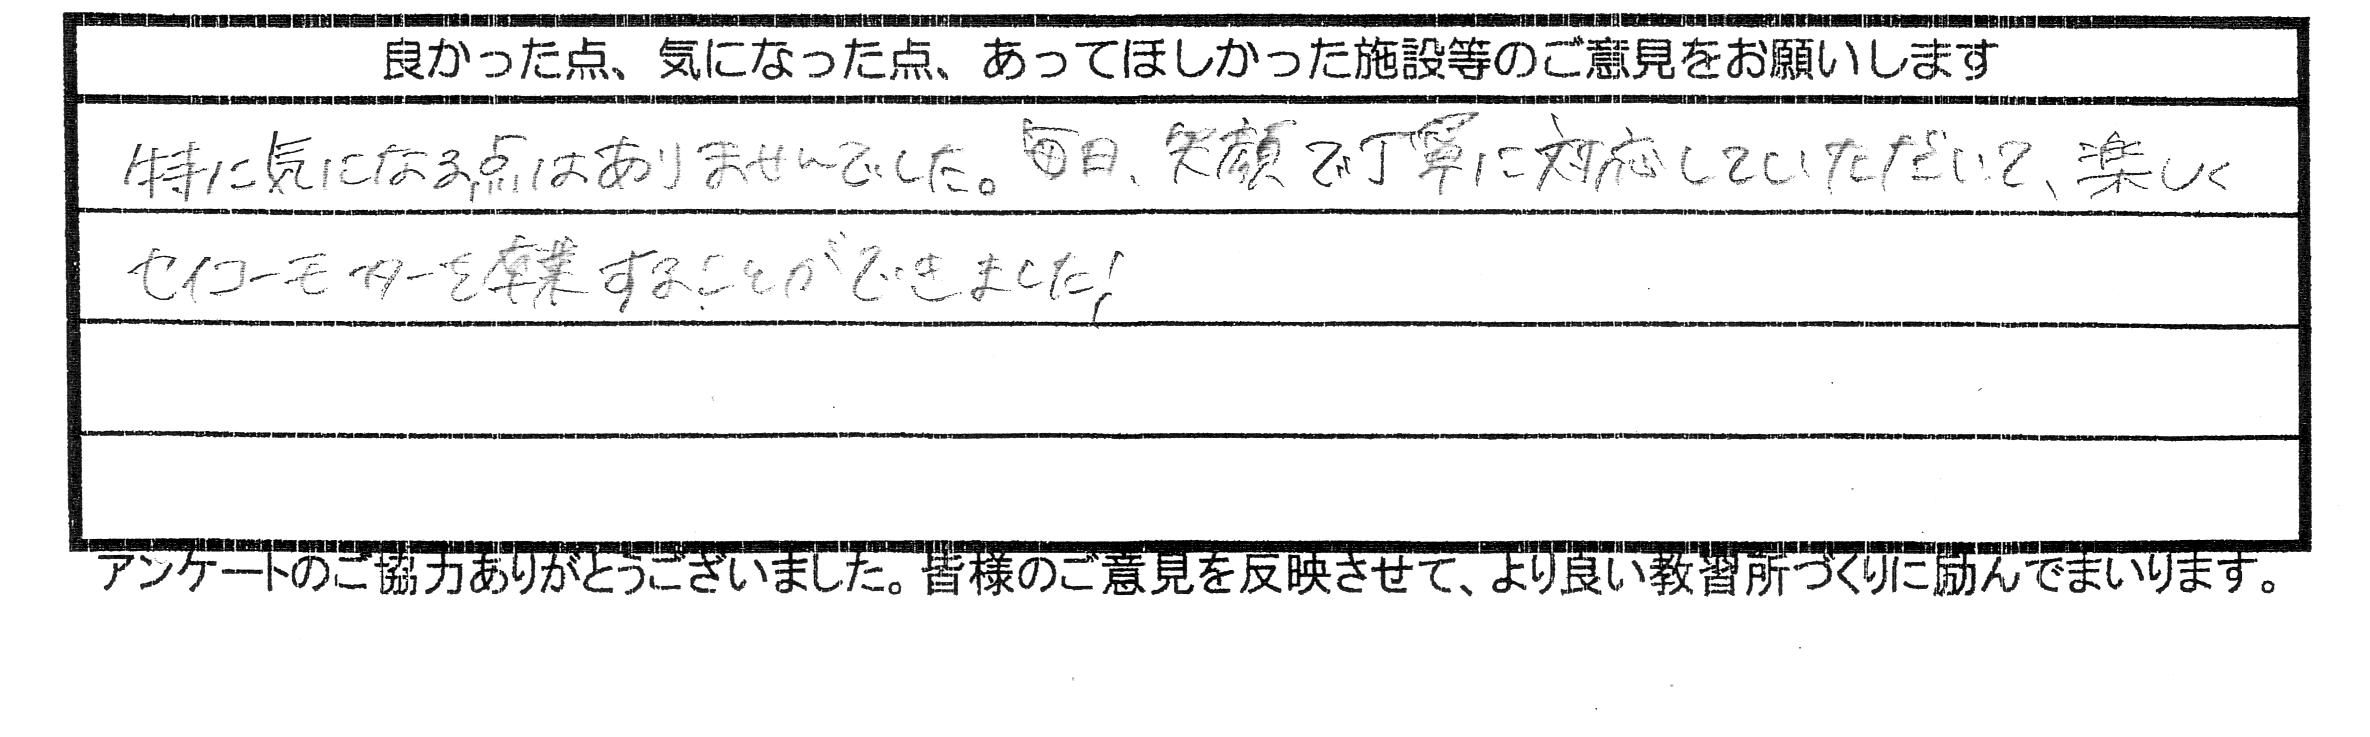 良かった点、気になった点、あってほしかった施設等のご意見をお願いします
特に気になる点はありませんでした。毎日、笑顔で丁寧に対応していただいて、楽しく
セイコーモーターを卒業することができました!
アンケートのご協力ありがとうございました。皆様のご意見を反映させて、より良い教習所づくりに励んでまいります。